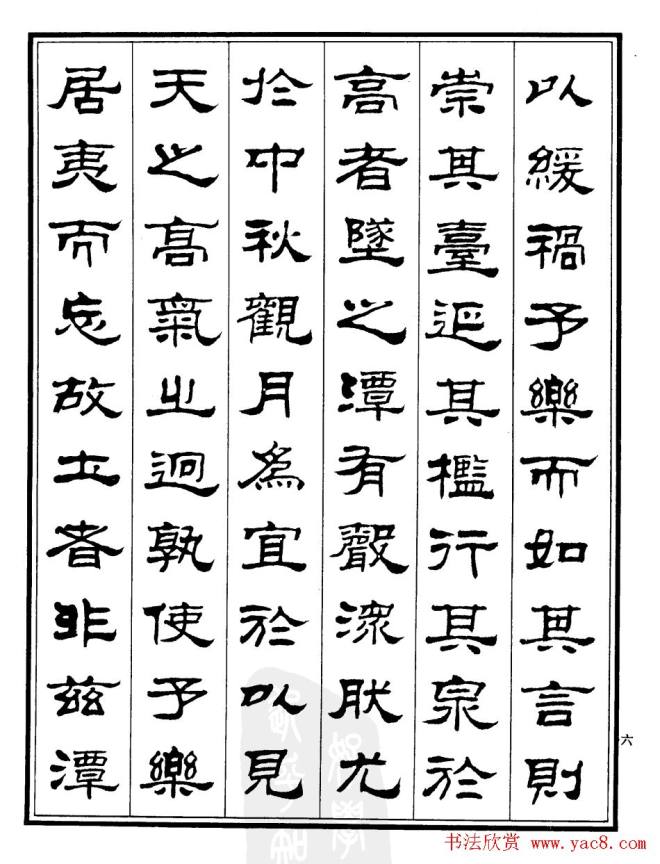 以緩禍予樂而如其言則
崇其臺延其檻行其泉於
高者墜之潭有聲潨然尤
於中秋觀月爲宜於以見
天之高氣之迥孰使予樂
居夷而忘故土者非茲潭
六
书法欣赏 www.yac8.com